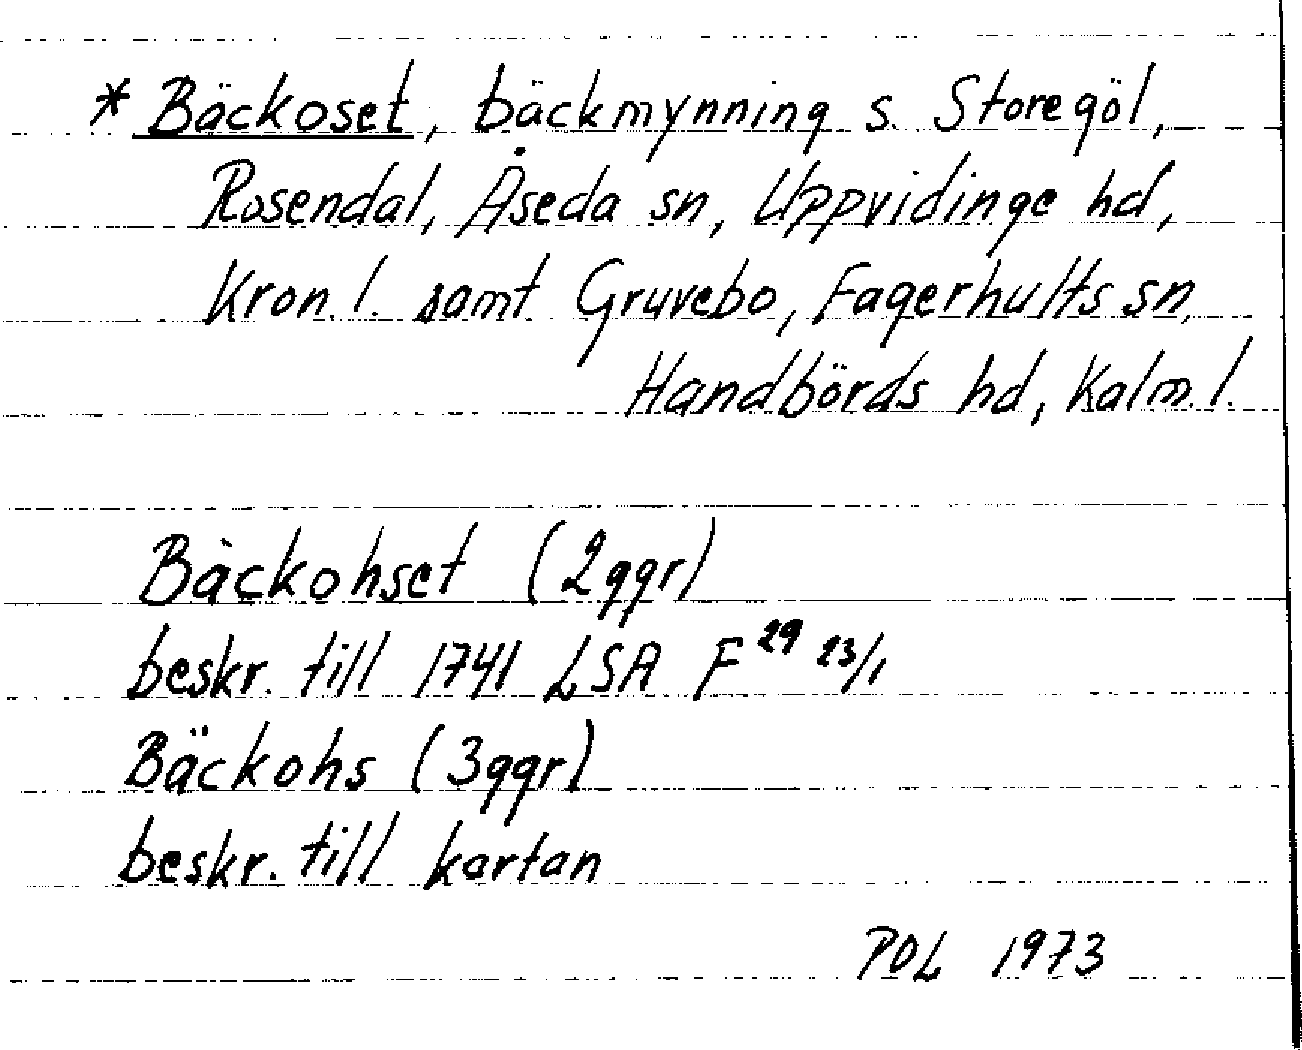 * Bäckoset, bäckmynning s. Storegöl,
Rosendal, Åseda sn, Uppvidinge hd,
Kron. l. samt Gruvebo, Fagerhults sn,
Handbörds hd, Kalm. l.
Bäckohset (2ggr)
beskr. till 1741 LSA F 29 23/1
Bäckohs (3ggr)
beskr. till kartan
POL 1973